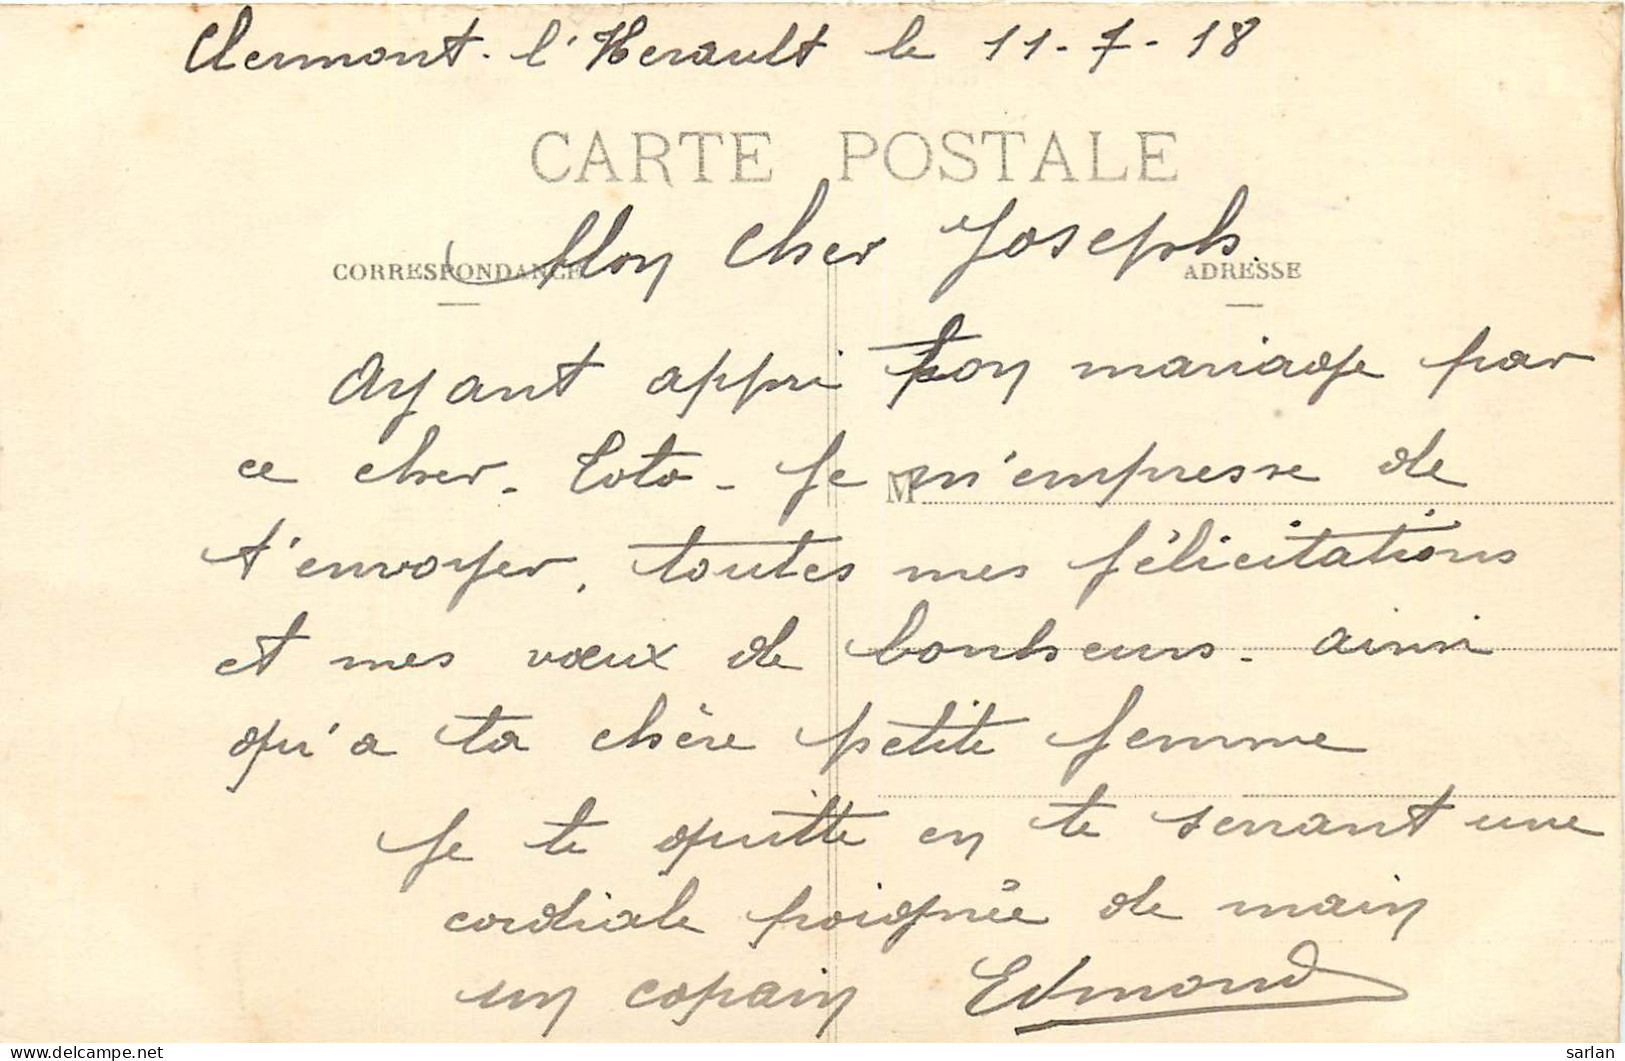 Clermont-l'Herault le 11-7-18
CARTE POSTALE
Mon Cher Joseph.
CORRESPONDANCE
ADRESSE
Ayant appri ton mariage par
ce cher. Toto - Je m'empresse de
M
t'envoyer, toutes mes félicitations
et mes vœux de bonheurs. ainsi
qu'a ta chère petite femme
Je te quitte en te serrant une
cordiale poignée de main
un copain Edmond
sarlan
delcampe.net